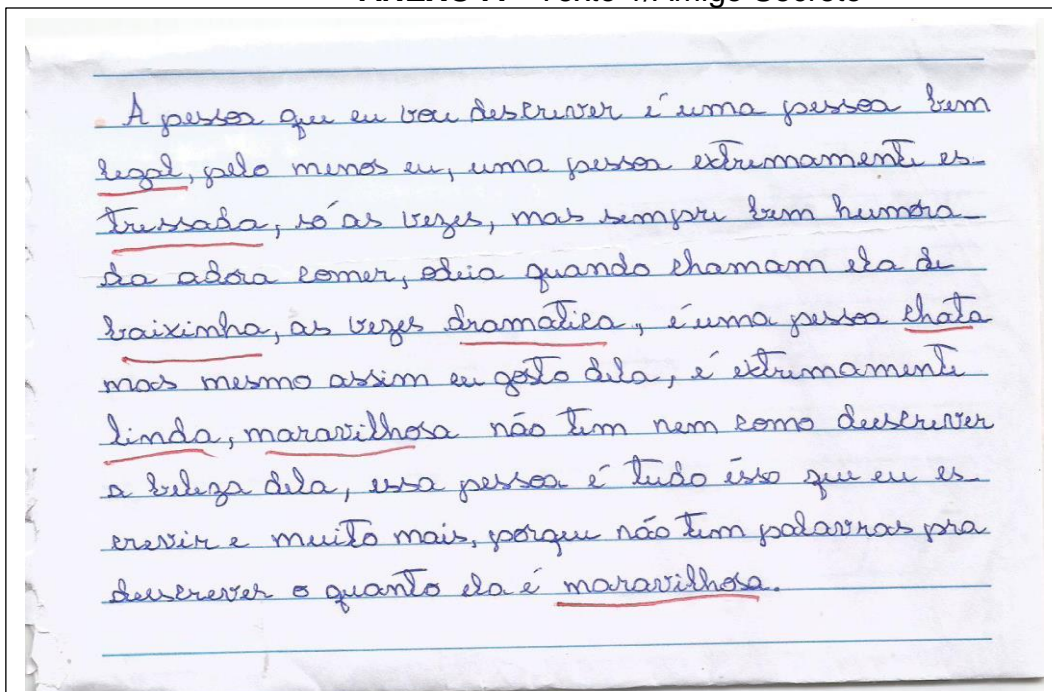 A pessoa que eu vou descrever é uma pessoa bem
legal, pelo menos eu, uma pessoa extremamente es-
tressada, só as vezes, mas sempre bem humora-
da adora comer, odeia quando chamam ela de
baixinha, as vezes dramática, é uma pessoa chata
mas mesmo assim eu gosto dela, é extremamente
linda, maravilhosa não tem nem como deescrever
a beleza dela, essa pessoa é tudo isso que eu es-
crevir e muito mais, porque não tem palavras pra
deescrever o quanto ela é maravilhosa.